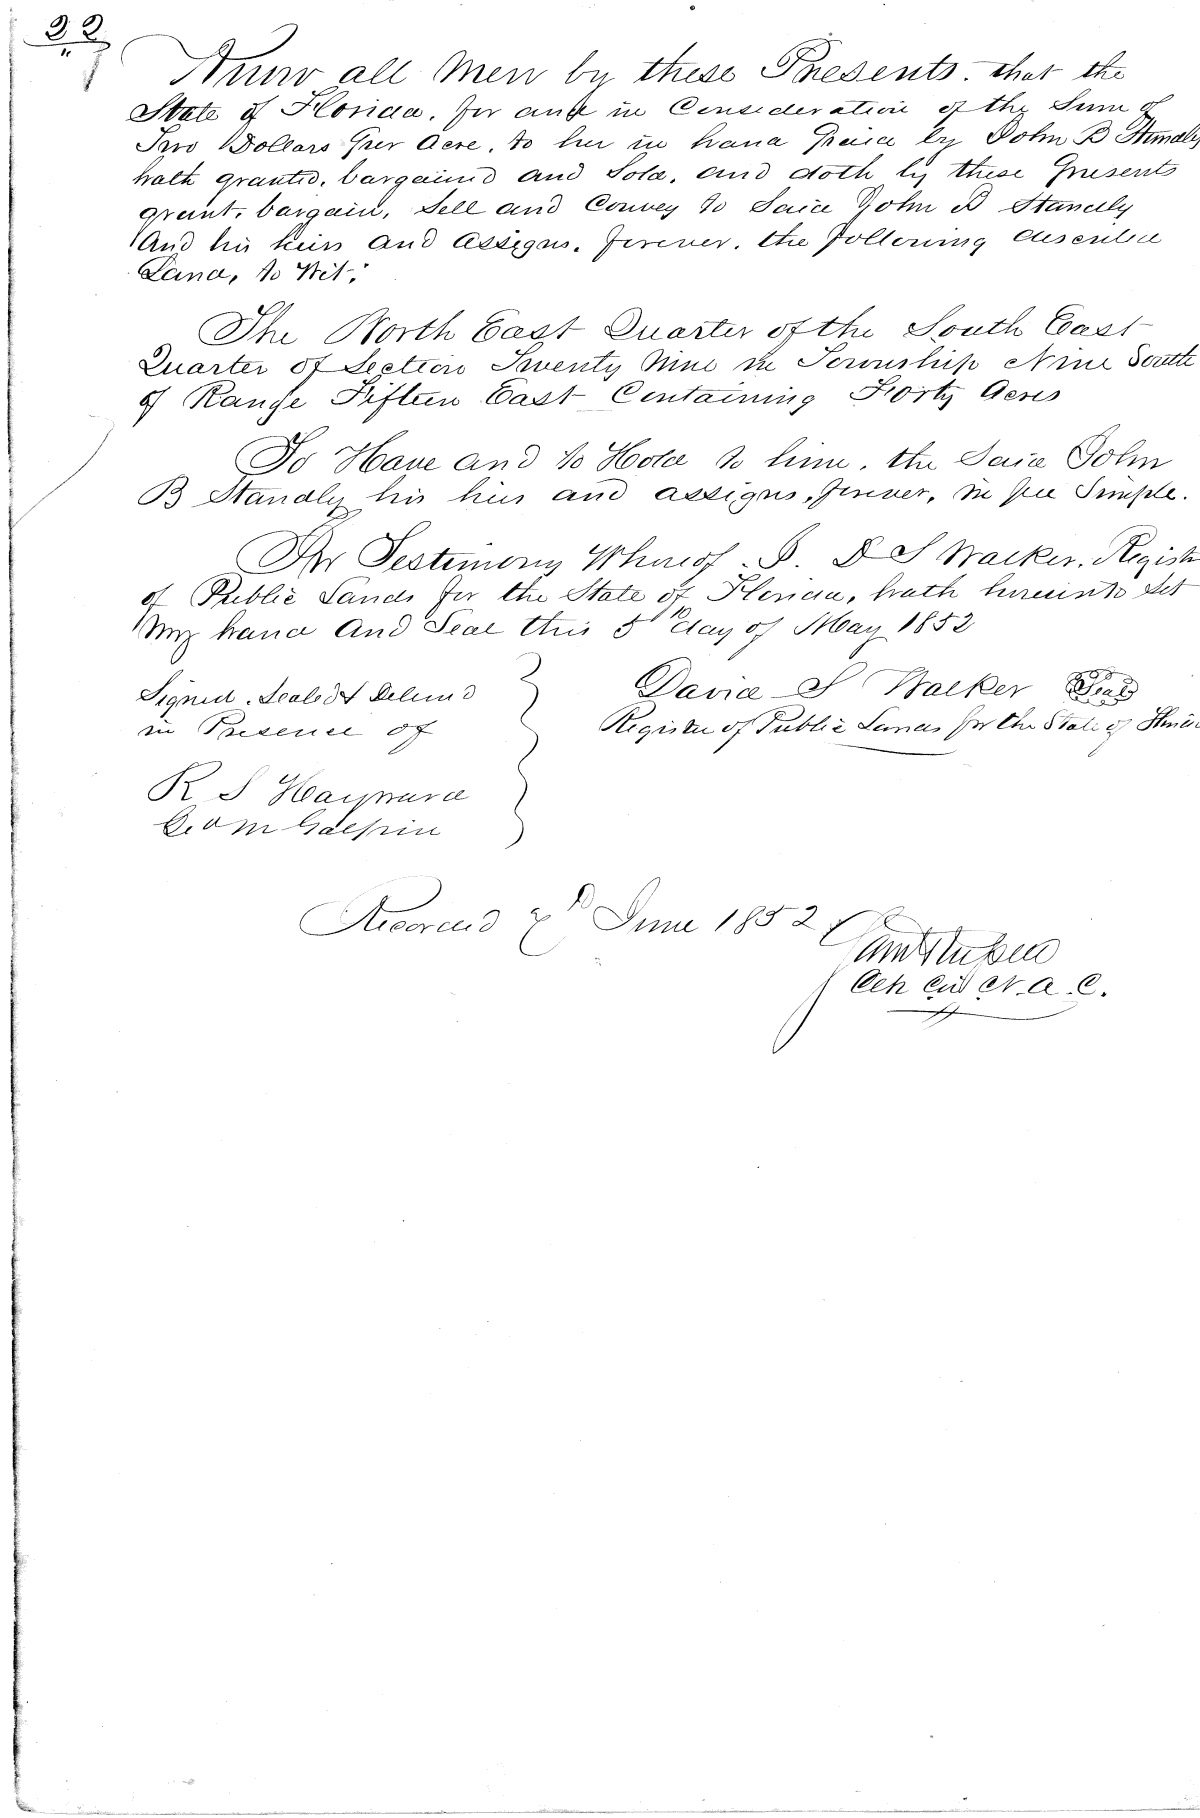 22
Know all Men by these Presents. that the
State of Florida, for and in Consideration of the Sum of
Two Dollars Per Acre, to her in hand Paid by John B Standly
hath granted, bargained and Sold, and doth by these Presents
grant, bargain, Sell and Convey to Said John B Standly
And his heirs and assigns, forever, the following described
Land, to Wit;
The North East Quarter of the South East
Quarter of Section Twenty Nine in Township Nine South
of Range Fifteen East Containing Forty Acres
To Have and to Hold to him, the Said John
B Standly his hiers and assigns, forever, in fee Simple.
In Testimony Whereof. I. D S Walker, Registr
of Public Lands for the State of Florida, hath hereunto Set
My hand And Seal this 5th day of May 1852
Signed, Sealed & Delived
in Presence of
David S Walker Seal
Register of Public Lands for the State of Florida
R S Hayward
Geo M Galphin
Recorded June 1852
Clk Cir Ct. A. C.